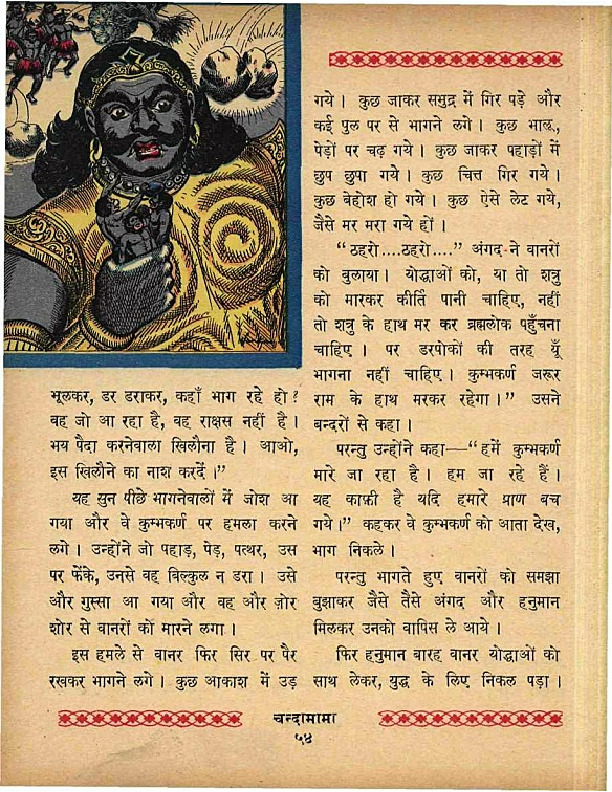 भूलकर, डर डराकर, कहाँ भाग रहे हो?
वह जो आ रहा है, वह राक्षस नहीं है।
भय पैदा करनेवाला खिलौना है। आओ,
इस खिलौने का नाश करदें।"
यह सुन पीछे भागनेवालों में जोश आ
गया और वे कुम्भकर्ण पर हमला करने
लगे। उन्होंने जो पहाड़, पेड़, पत्थर, उस
पर फेंके, उनसे वह बिल्कुल न डरा। उसे
और गुस्सा आ गया और वह और ज़ोर
शोर से वानरों को मारने लगा।
इस हमले से वानर फिर सिर पर पैर
रखकर भागने लगे। कुछ आकाश में उड़
गये। कुछ जाकर समुद्र में गिर पड़े और
कई पुल पर से भागने लगे। कुछ भालू,
पेड़ों पर चढ़ गये। कुछ जाकर पहाड़ों में
छुप छुपा गये। कुछ चित्त गिर गये।
कुछ बेहोश हो गये। कुछ ऐसे लेट गये,
जैसे मर मरा गये हों।
"ठहरो....ठहरो...." अंगद ने वानरों
को बुलाया। योद्धाओं को, या तो शत्रु
को मारकर कीर्ति पानी चाहिए, नहीं
तो शत्रु के हाथ मर कर ब्रह्मलोक पहुँचना
चाहिए। पर डरपोकों की तरह यूँ
भागना नहीं चाहिए। कुम्भकर्ण जरूर
राम के हाथ मरकर रहेगा।" उसने
बन्दरों से कहा।
परन्तु उन्होंने कहा—"हमें कुम्भकर्ण
मारे जा रहा है। हम जा रहे हैं।
यह काफ़ी है यदि हमारे प्राण बच
गये।" कहकर वे कुम्भकर्ण को आता देख,
भाग निकले।
परन्तु भागते हुए वानरों को समझा
बुझाकर जैसे तैसे अंगद और हनुमान
मिलकर उनको वापिस ले आये।
फिर हनुमान बारह वानर योद्धाओं को
साथ लेकर, युद्ध के लिए निकल पड़ा।
चन्दामामा
५४